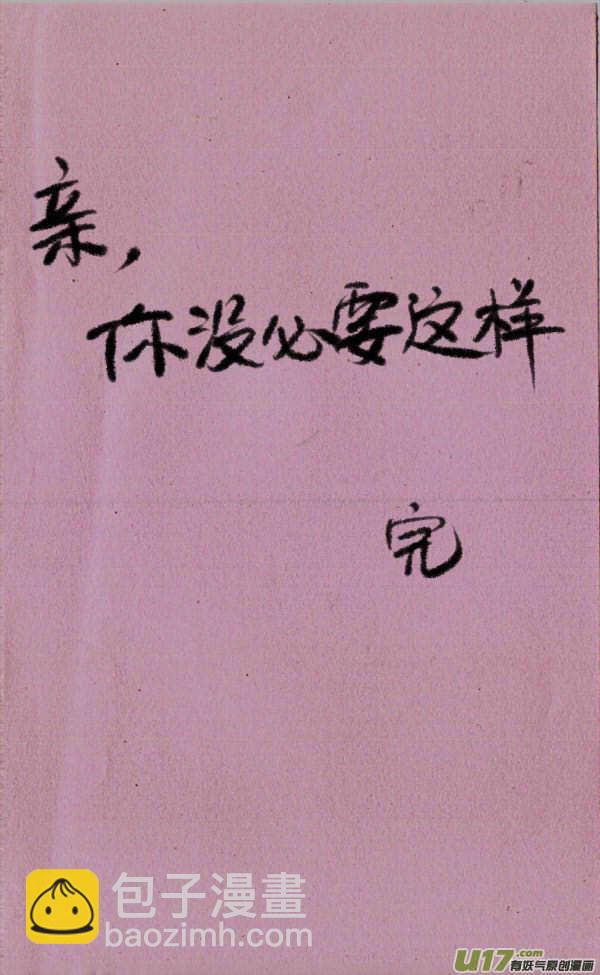 亲,
你没必要这样
完
包子漫畫
baozimh.com
U17.com
有妖气原创漫画